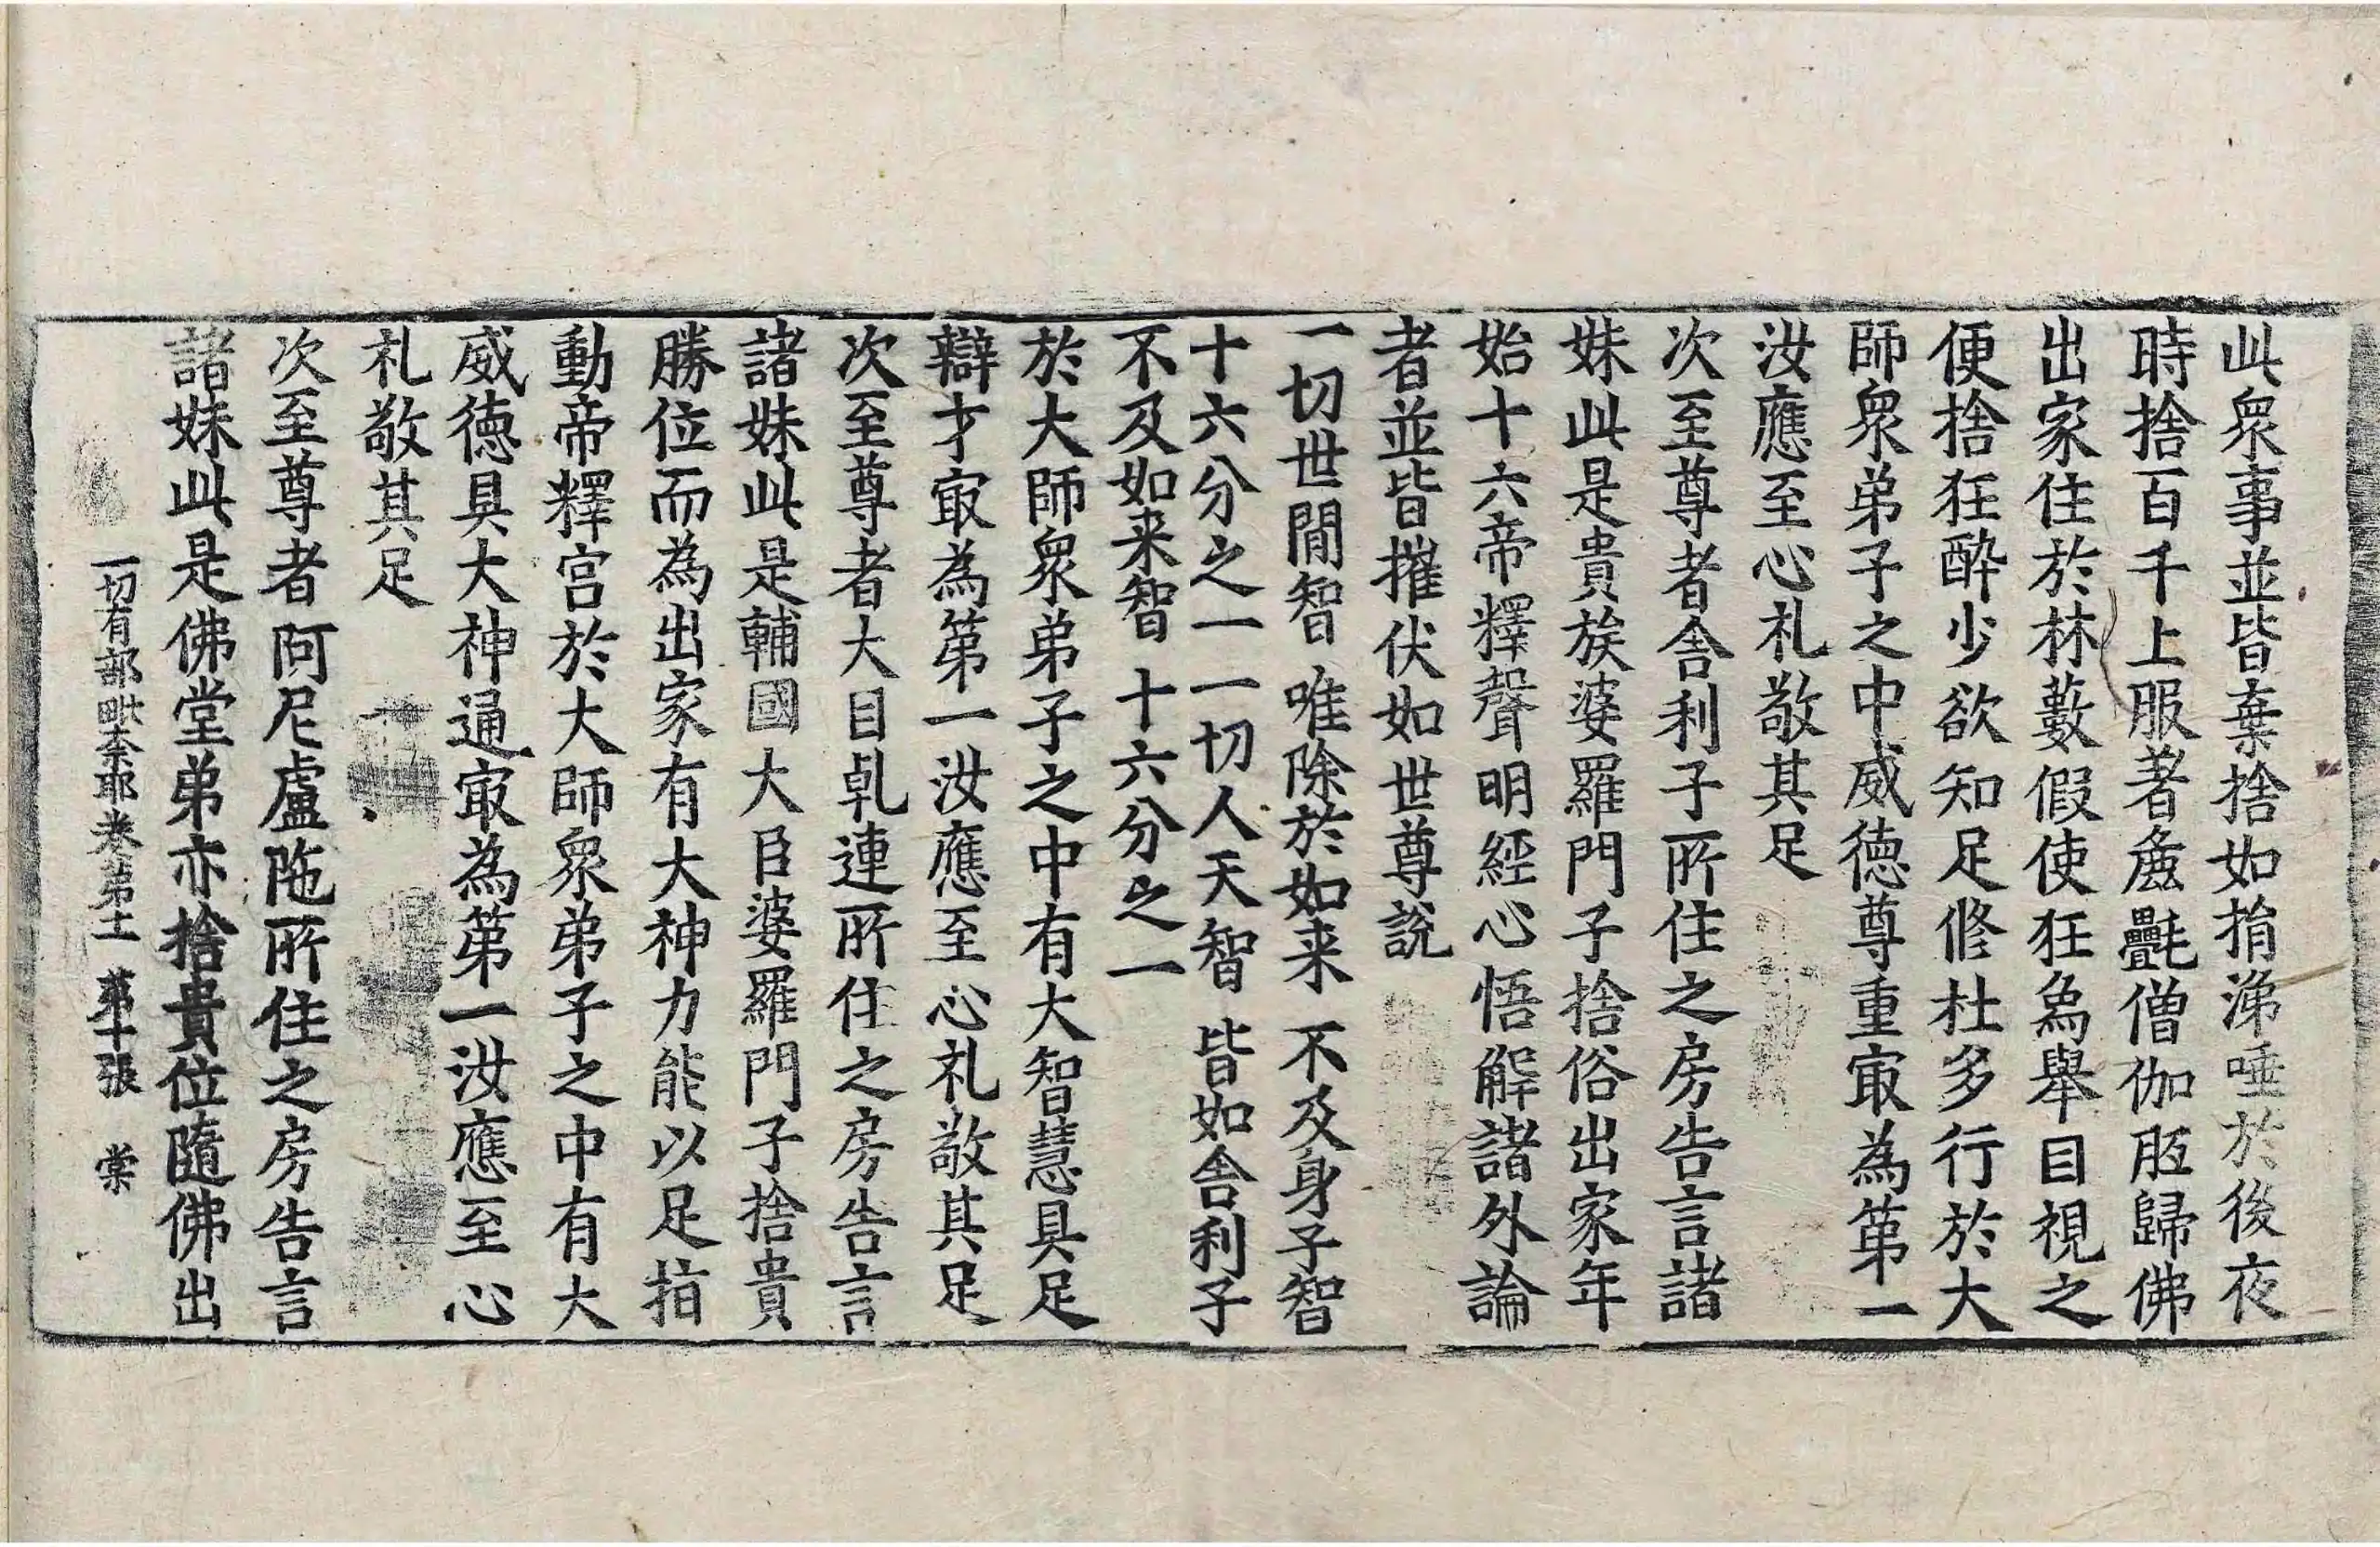 此衆事並皆棄捨如捐涕唾於後夜
時捨百千上服著麁㲲僧伽胝歸佛
出家住於林藪假使狂象舉目視之
便捨狂醉少欲知足修杜多行於大
師衆弟子之中威德尊重㝡為第一
汝應至心礼敬其足
次至尊者舍利子所住之房告言諸
妹此是貴族婆羅門子捨俗出家年
始十六帝釋聲明經心悟解諸外論
者並皆摧伏如世尊說
一切世間智 唯除於如来 不及身子智
十六分之一 一切人天智 皆如舍利子
不及如来智 十六分之一
於大師衆弟子之中有大智慧具足
辯才㝡為第一汝應至心礼敬其足
次至尊者大目乹連所住之房告言
諸妹此是輔國大臣婆羅門子捨貴
勝位而為出家有大神力能以足指
動帝釋宮於大師衆弟子之中有大
威德具大神通㝡為第一汝應至心
礼敬其足
次至尊者阿尼盧陁所住之房告言
諸妹此是佛堂弟亦捨貴位隨佛出
一切有部毗奈耶卷第十一 第十張 棠